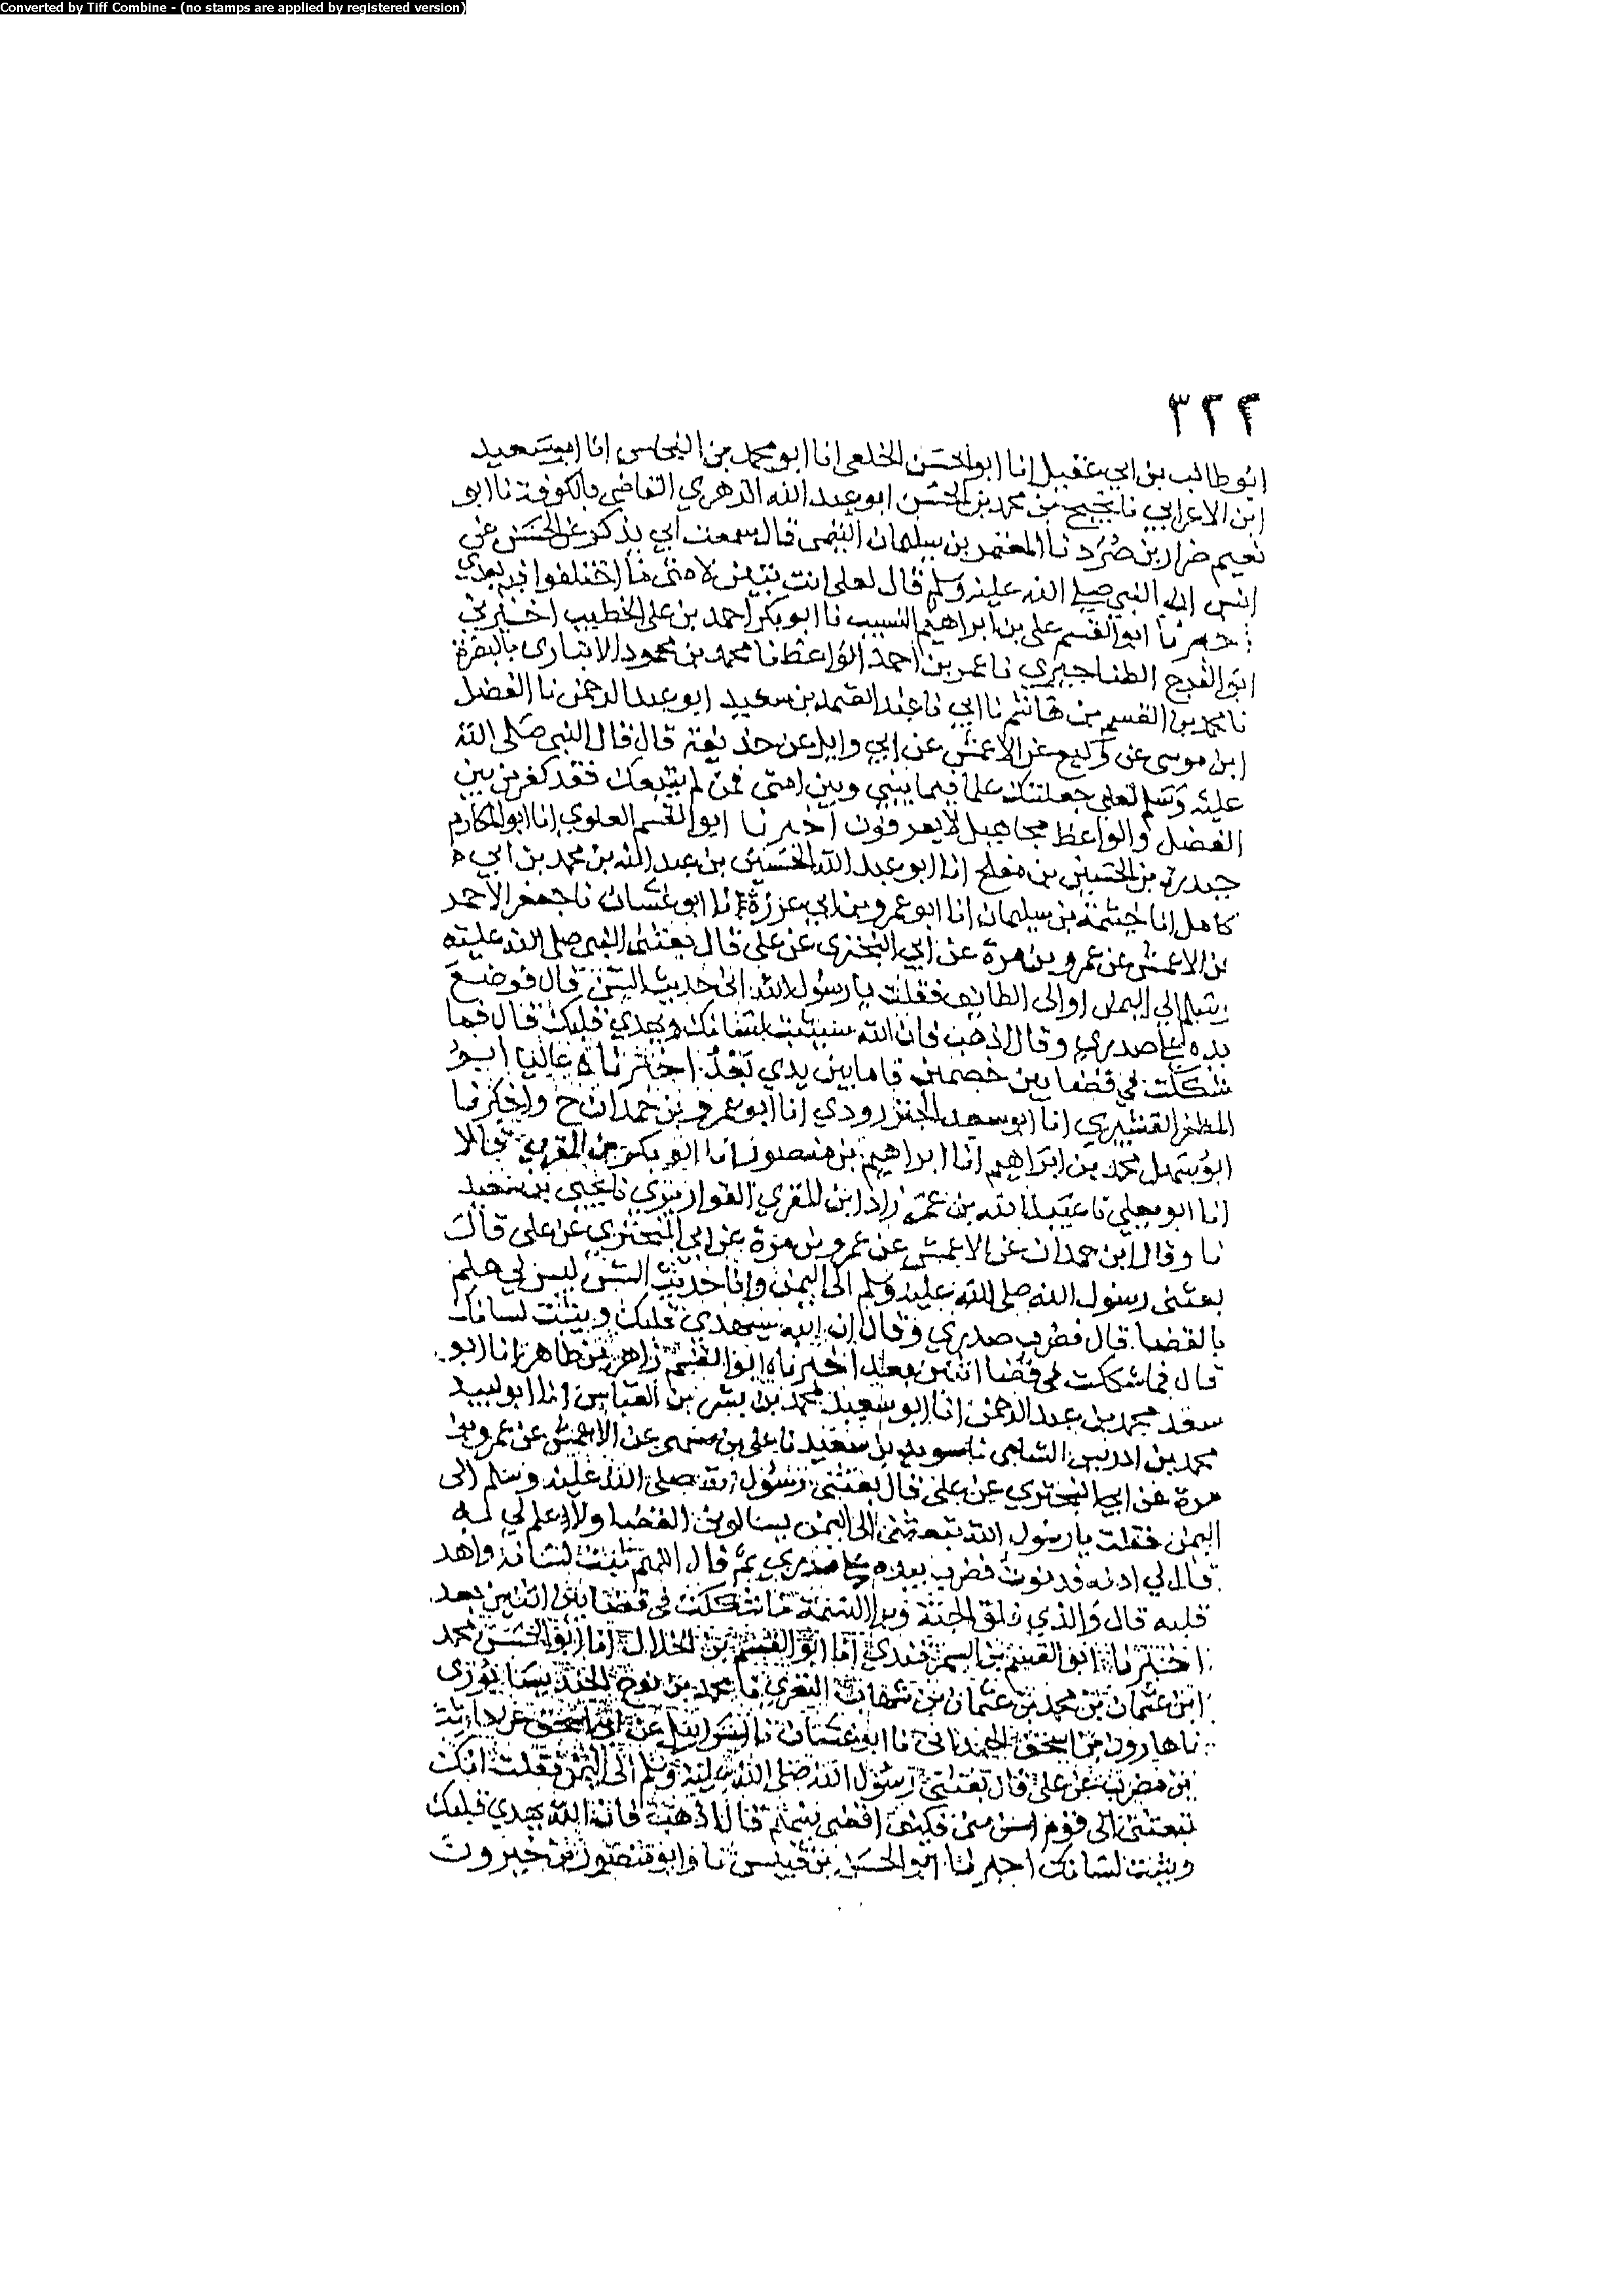 Converted by Tiff Combine - (no stamps are applied by registered version)
٣٢٤
ابو طالب بن ابي عقيل انا ابو الحسن الخلعي انا ابو محمد بن النحاس انا ابو سعيد
ابن الاعرابي نا نجيح بن محمد بن الحسن ابو عبد الله الزهري القاضي بالكوفة نا ابو
نعيم ضرار بن صُرَد نا المعتمر بن سليمان التيمي قال سمعت ابي يذكر عن الحسن عن
انس ان النبي صلى الله عليه وسلم قال لعلي انت تبين لامتي ما اختلفوا فيه بعدي
اخبرنا ابو القسم علي بن ابراهيم النسيب نا ابو بكر احمد بن علي الخطيب اخبرني
ابو الفرج الطناجيري نا عمر بن احمد الواعظ نا محمد بن محمود الانباري بالبصرة
نا محمد بن القسم بن هاشم نا ابي نا عبد الصمد بن سعيد ابو عبد الرحمن نا الفضل
ابن موسى عن وكيع عن الاعمش عن ابي وايل عن حذيفة قال قال النبي صلى الله
عليه وسلم لعلي جعلتك علما فيما بيني وبين امتي فمن لم يتبعك فقد كفر من بين
الفضل والواعظ مجاهيل لا يعرفون اخبرنا ابو القسم العلوي انا ابو المكارم
حيدرة بن الحسين بن مفلح انا ابو عبد الله الحسين بن عبد الله بن محمد بن ابي
كامل انا خيثمة بن سليمان انا ابو عمرو بن ابي عزرة انا ابو غسان نا جعفر الاحمر
بن الاعمش عن عمرو بن مرة عن ابي البختري عن علي قال بعثني النبي صلى الله عليه
وسلم الى اليمن او الى الطائف فقلت يا رسول الله اني حديث السن قال فوضع
يده على صدري وقال اذهب فان الله سيثبت لسانك ويهدي قلبك قال فما
شككت في قضا بين خصمين قاما بين يدي بَعْدُ اخبرناه عاليا ابو
المظفر القشيري انا ابو سعد الجنزرودي انا ابو عمرو بن حمدان ح واخبرنا
ابو سهل محمد بن ابراهيم انا ابراهيم بن منصور انا ابو بكر بن المقري قالا
انا ابو يعلى نا عبيد الله بن عمر زاد ابن المقري القواريري نا يحيى بن سعيد
نا وقال ابن حمدان عن الاعمش عن عمرو بن مرة عن ابي البختري عن علي قال
بعثني رسول الله صلى الله عليه وسلم الى اليمن وانا حديث السن ليس لي علم
بالقضا قال فضرب صدري وقال ان الله سيهدي قلبك ويثبت لسانك
قال فما شككت في قضا اثنين بعد اخبرناه ابو القسم زاهر بن طاهر انا ابو
سعد محمد بن عبد الرحمن انا ابو سعيد محمد بن بشر بن العباس انا ابو لبيد
محمد بن ادريس الشامي نا سويد بن سعيد نا علي بن مسهر عن الاعمش عن عمرو بن
مرة عن ابي البختري عن علي قال بعثني رسول الله صلى الله عليه وسلم الى
اليمن فقلت يا رسول الله تبعثني الى اليمن يسالوني القضا ولا علم لي به
قال لي ادنه فدنوت فضرب بيده على صدري ثم قال اللهم ثبت لسانه واهد
قلبه قال والذي فلق الحبة وبرا النسمة ما شككت في قضا بين اثنين بعد
اخبرنا ابو القسم بن السمرقندي انا ابو القسم بن الخلال انا ابو الحسن محمد
ابن عثمان بن محمد بن عثمان بن شهاب النفري نا محمد بن نوح الجنديسابوري
نا هارون بن اسحق الهمداني نا ابو غسان نا اسرائيل عن ابي اسحق عن حارثة
بن مضرب عن علي قال بعثني رسول الله صلى الله عليه وسلم الى اليمن فقلت انك
تبعثني الى قوم اسن مني فكيف اقضي بينهم قال اذهب فان الله يهدي قلبك
ويثبت لسانك اخبرنا ابو الحسن بن قبيس نا وابو منصور بن خيرون